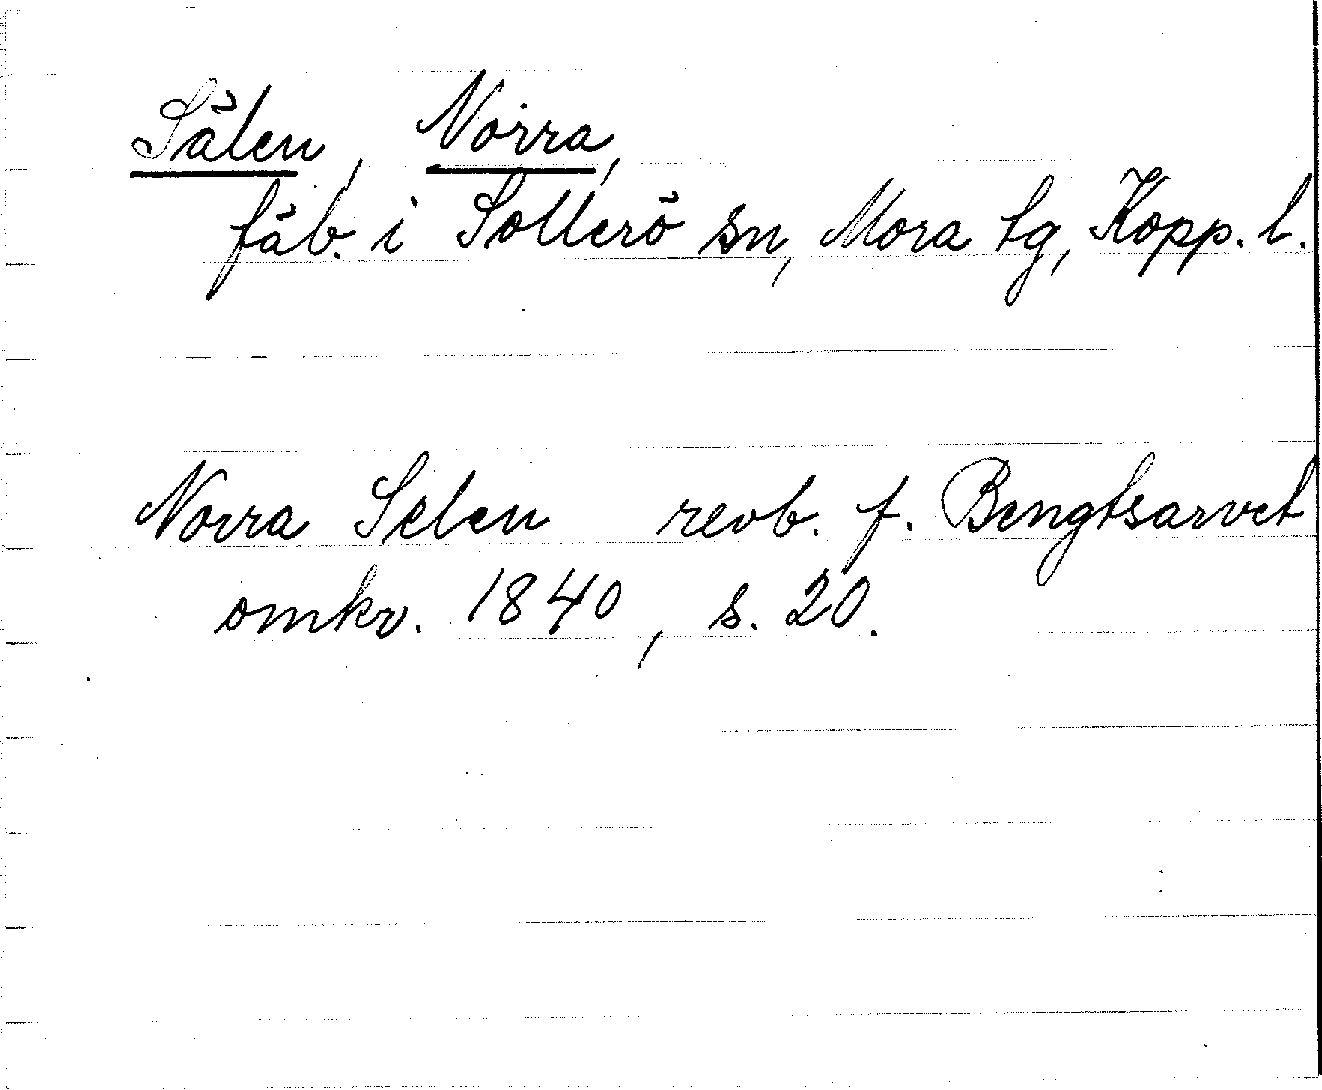 Sälen, Norra,
fäb. i Sollerö sn, Mora tg, Kopp. l.
Norra Selen revb. f. Bengtsarvet
omkr. 1840, s. 20.